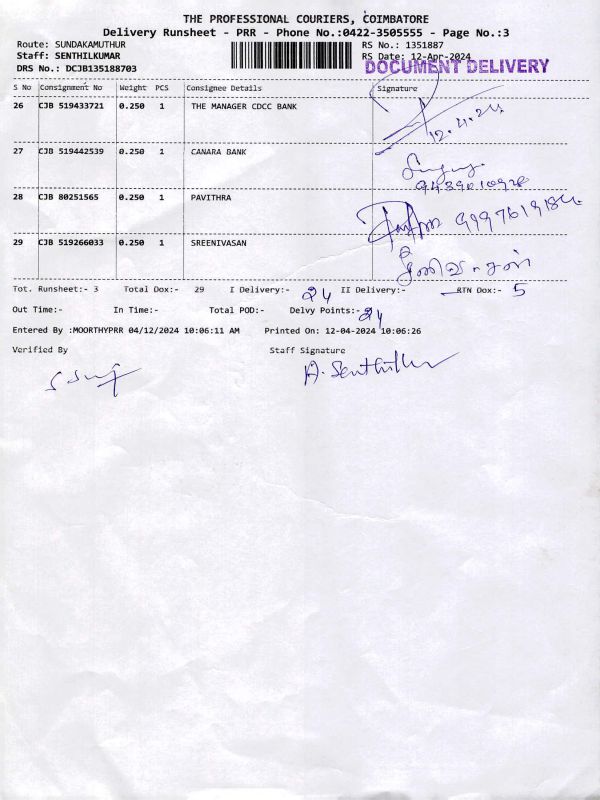 THE PROFESSIONAL COURIERS, COIMBATORE
Delivery Runsheet - PRR - Phone No.:0422-3505555 - Page No.:3
Route: SUNDAKAMUTHUR RS No.: 1351887
Staff: SENTHILKUMAR RS Date: 12-Apr-2024
DRS No.: DCJB135188703 DOCUMENT DELIVERY
S No Consignment No Weight PCS Consignee Details Signature
26 CJB 519433721 0.250 1 THE MANAGER CDCC BANK
12.4.24
27 CJB 519442539 0.250 1 CANARA BANK
28 CJB 80251565 0.250 1 PAVITHRA
29 CJB 519266033 0.250 1 SREENIVASAN
சீனிவாசன்
Tot. Runsheet:- 3 Total Dox:- 29 I Delivery:- 24 II Delivery:- RTN Dox:- 5
Out Time:- In Time:- Total POD:- Delvy Points:- 24
Entered By :MOORTHYPRR 04/12/2024 10:06:11 AM Printed On: 12-04-2024 10:06:26
Verified By Staff Signature
A. Senthilkumar